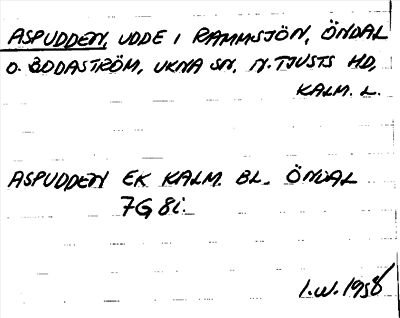 ASPUDDEN, UDDE I RAMMSJÖN, ÖNDAL
O. BODASTRÖM, UKNA SN, N. TJUSTS HD,
KALM. L.
ASPUDDEN EK KALM. BL. ÖNDAL
7G 8i.
I.W. 1958